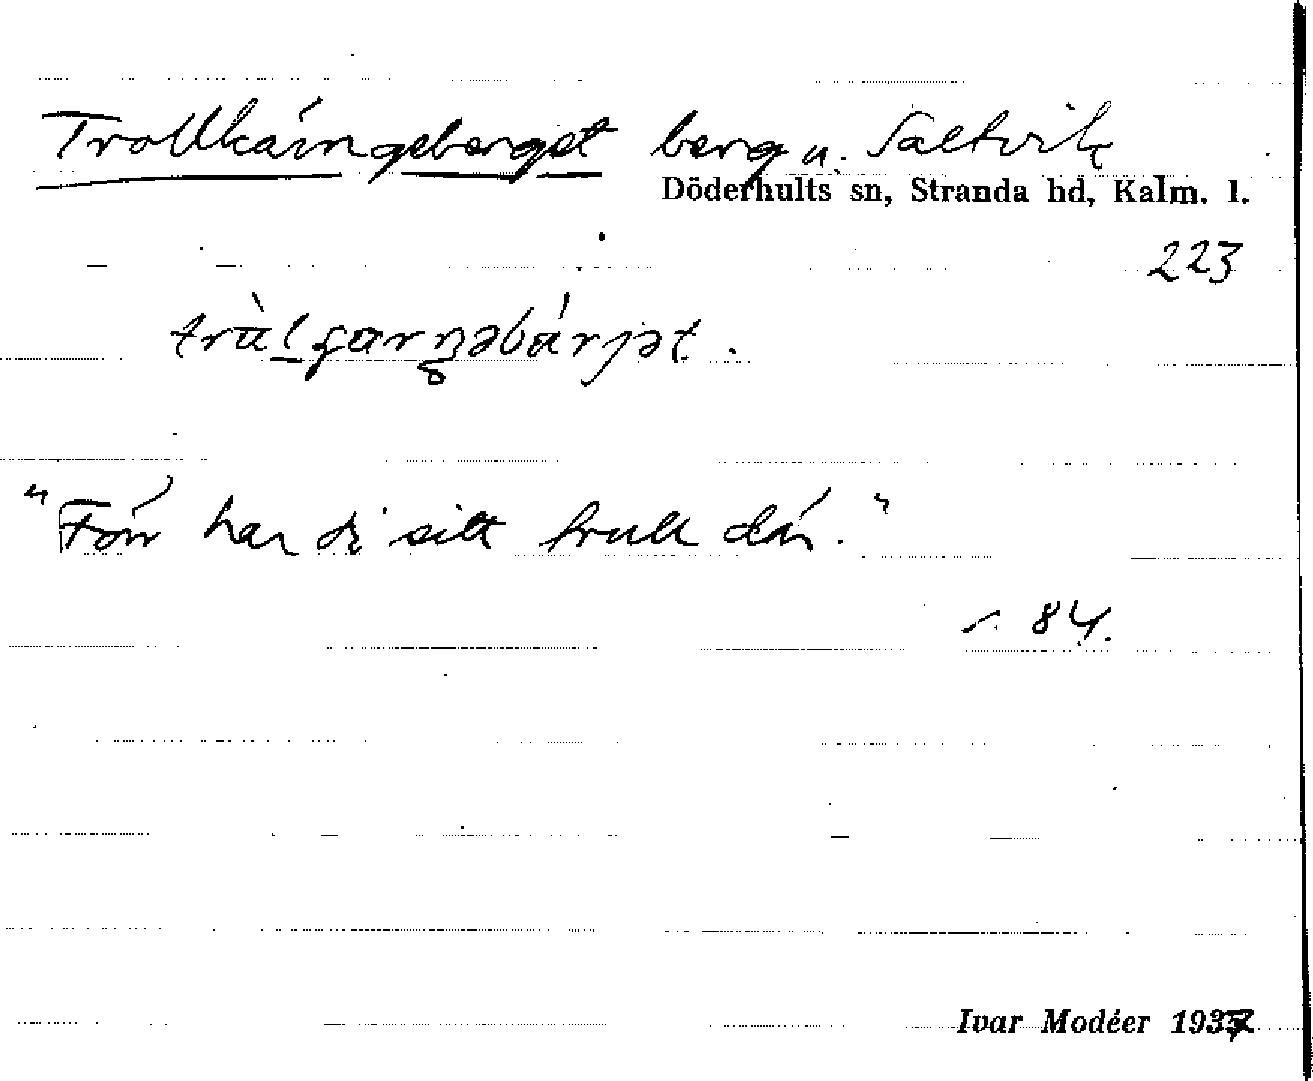 Trollkäringeberget berg u. Saltvik
Döderhults sn, Stranda hd, Kalm. l.
223
tràlgarŋəbárjət.
"Förr har di sitt trull där."
s. 84.
Ivar Modéer 1937